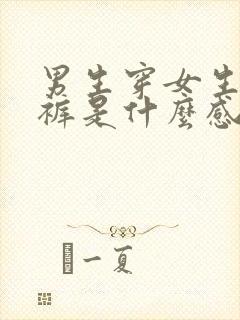 男生穿女生
裤是什麼感
一夏